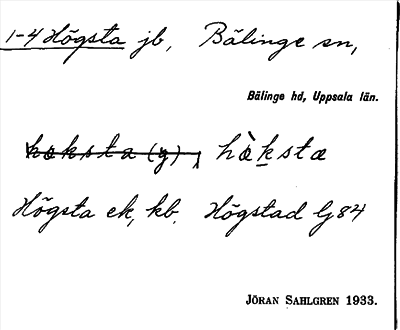 1-4 Högsta jb, Bälinge sn,
Bälinge hd, Uppsala län.
hœksta (y), hœ̀kstœ
Högsta ek, kb. Högstad Lj 84
JÖRAN SAHLGREN 1933.